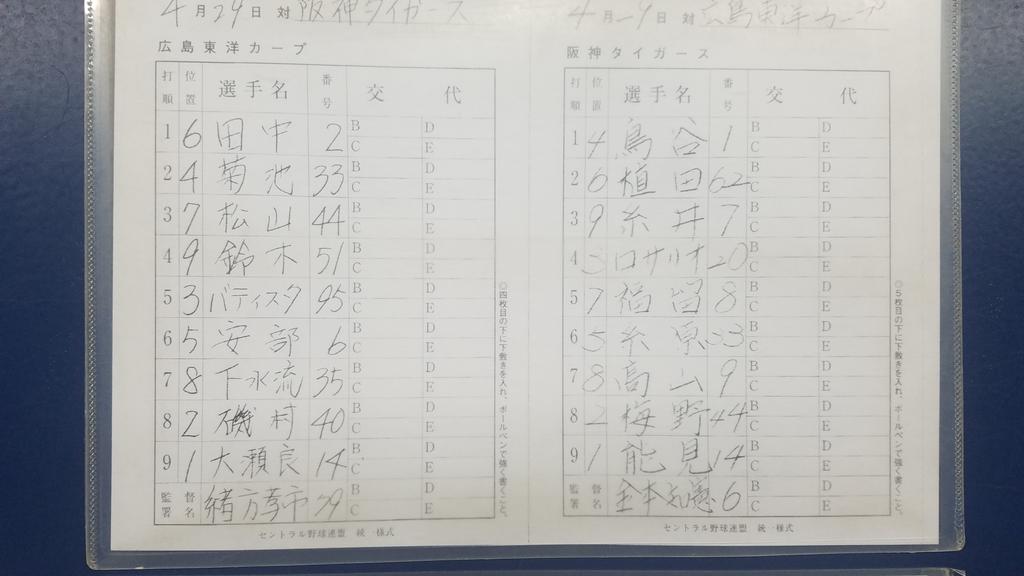 4月29日 対 阪神タイガース
広島東洋カープ
打順 位置 選手名 番号 交代
1 6 田中 2 B C D E
2 4 菊池 33 B C D E
3 7 松山 44 B C D E
4 9 鈴木 51 B C D E
5 3 バティスタ 95 B C D E
6 5 安部 6 B C D E
7 8 下水流 35 B C D E
8 2 磯村 40 B C D E
9 1 大瀬良 14 B C D E
監督署名 緒方孝市 79 B C D E
セントラル野球連盟 統一様式
◎四枚目の下に下敷きを入れ、ボールペンで強く書くこと。
4月29日 対 広島東洋カープ
阪神タイガース
打順 位置 選手名 番号 交代
1 4 鳥谷 1 B C D E
2 6 植田 62 B C D E
3 9 糸井 7 B C D E
4 3 ロサリオ 20 B C D E
5 7 福留 8 B C D E
6 5 糸原 33 B C D E
7 8 高山 9 B C D E
8 2 梅野 44 B C D E
9 1 能見 14 B C D E
監督署名 金本知憲 6 B C D E
セントラル野球連盟 統一様式
◎5枚目の下に下敷きを入れ、ボールペンで強く書くこと。